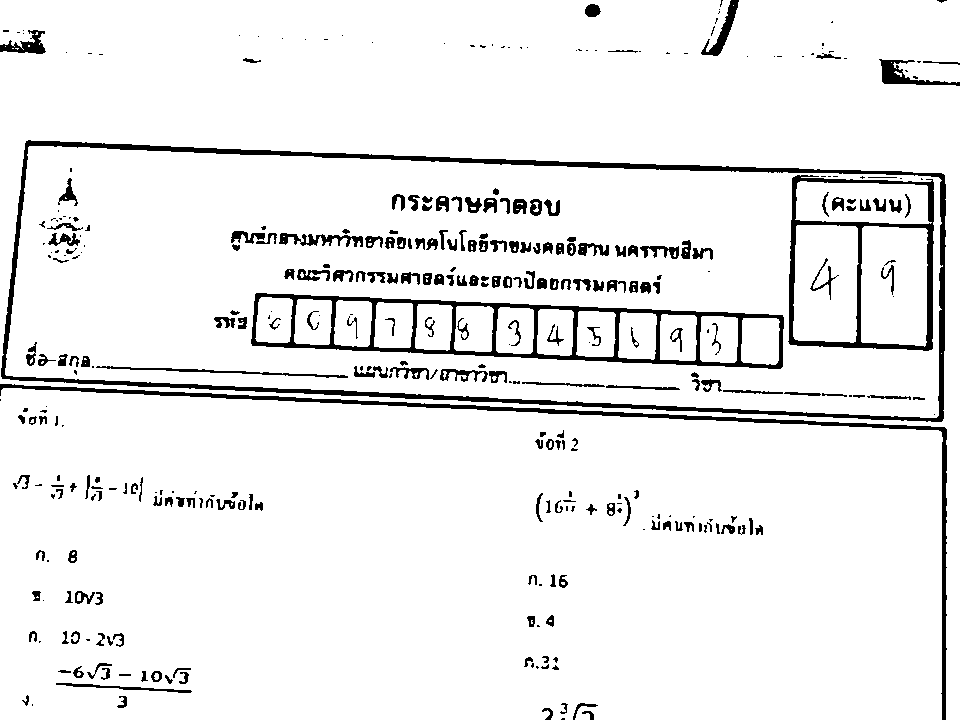 กระดาษคำตอบ
(คะแนน)
ศูนย์กลางมหาวิทยาลัยเทคโนโลยีราชมงคลอีสาน นครราชสีมา
4 9
คณะวิศวกรรมศาสตร์และสถาปัตยกรรมศาสตร์
รหัส 6 0 9 7 8 8 3 4 5 6 9 3
ชื่อ-สกุล แผนกวิชา/สาขาวิชา วิชา
ข้อที่ 1.
√3 - + | - 10| มีค่าเท่ากับข้อใด
ก. 8
ข. 10√3
ค. 10 - 2√3
ง. (-6√3 - 10√3)/3
ข้อที่ 2
(16 + 8)³ มีค่าเท่ากับข้อใด
ก. 16
ข. 4
ค.31